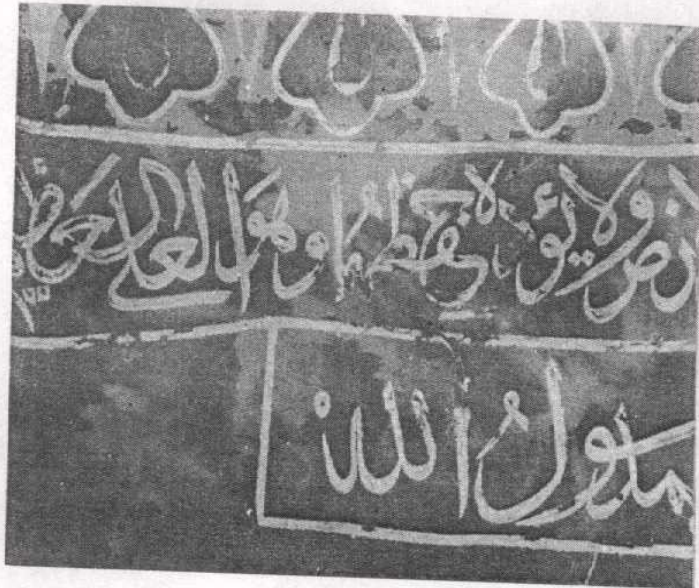 ارض ولا يؤده حفظهما وهو العلي العظيم
رسول الله